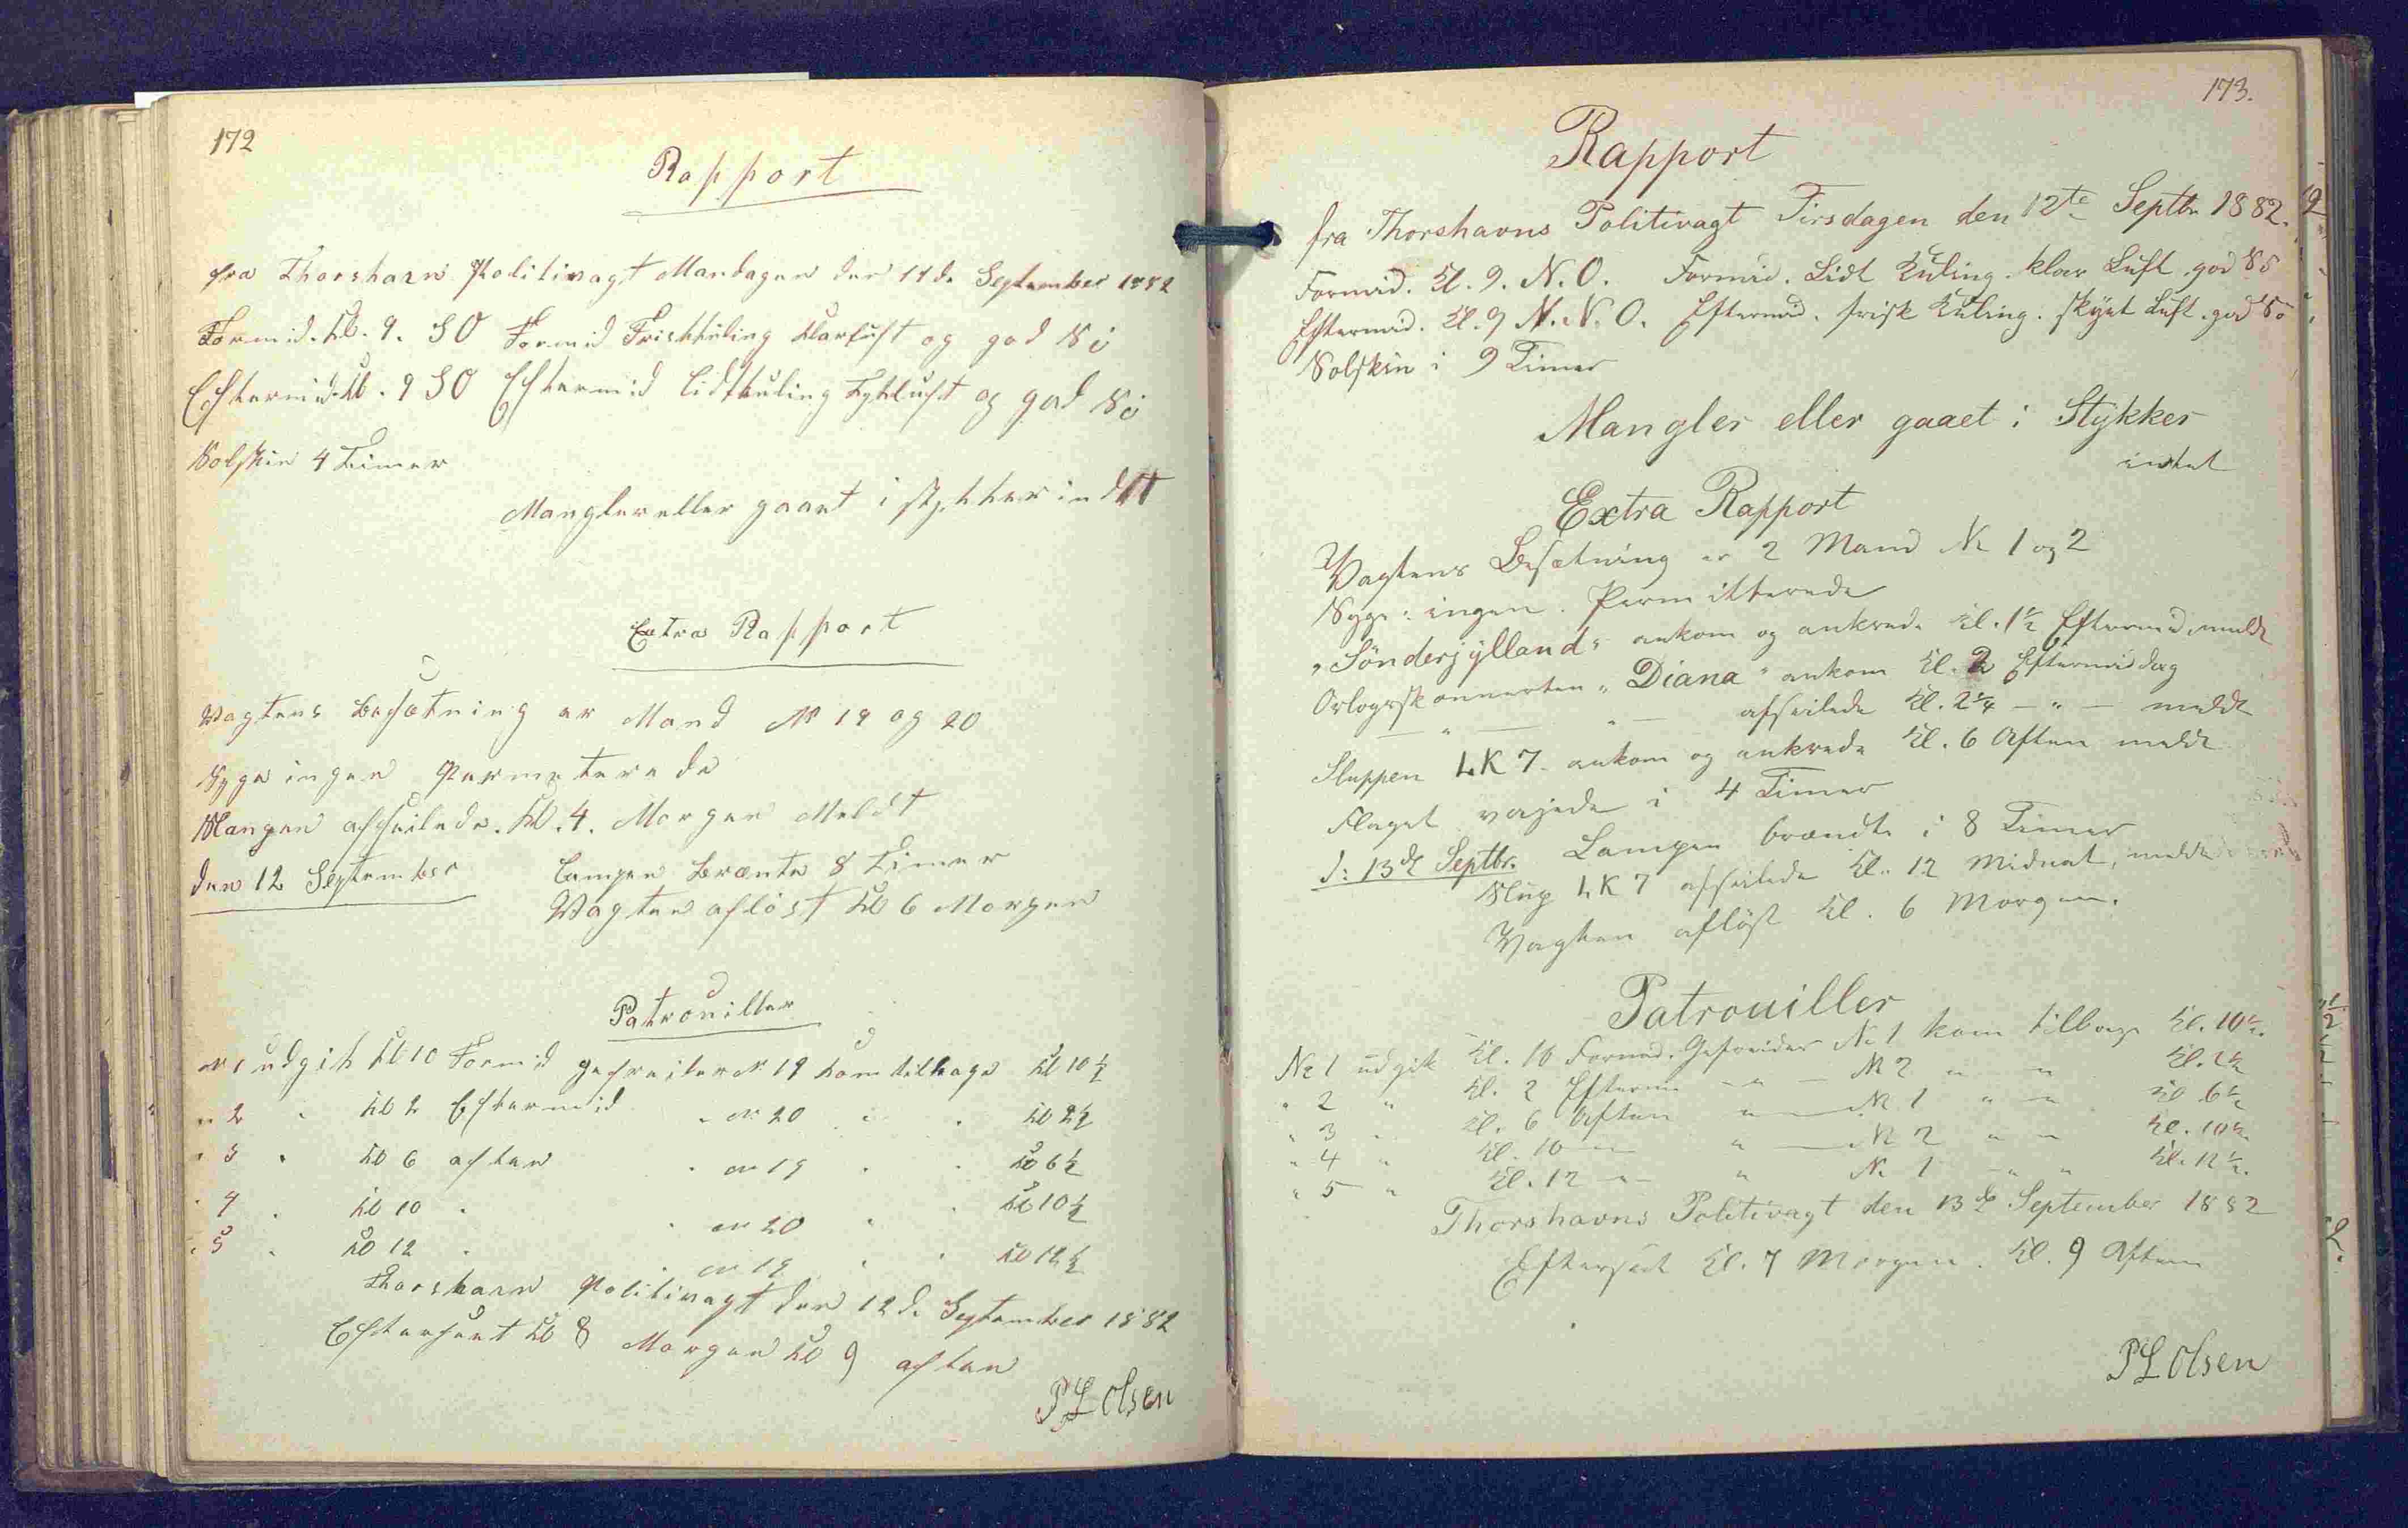 172
Rapport
fra Thorshavn Politivagt Mandagen den 11de September 1882
Formid. Kl. 9. SO Formid Friskkuling Klarluft og god Sö
Eftermid. Kl. 9 SO Eftermid Lidtkuling Tykluft og god Sö
Solskin 4 Timer
Mangler eller gaaet i stykker indtt
Extra Rapport
Vagtens Besætning er Mand No 19 og 20
Syge ingen Permeterede
afseilede. Kl. 4. Morgen Meldt
den 12 September Lampen Brænte 8 Timer
Vagten aflöst Kl 6 Morgen
Patrouiller
No 1 udgik Kl 10 Formid gefreiter No 19 kom tilbage Kl 10½
" 2 " Kl 2 Eftermid " No 20 " " Kl 2½
" 3 " Kl 6 aften " No 19 " " Kl 6½
" 4 " Kl 10 " " No 20 " " Kl 10½
" 5 " Kl 12 " " No 19 " " Kl 12½
Thorshavn Politivagt den 12de September 1882
Efterseet Kl 8 Morgen Kl 9 aften
PL Olsen
173.
Rapport
fra Thorshavns Politivagt Tirsdagen den 12te Septbr 1882.
Formid. Kl. 9. N.O. Formid. Lidt Kuling. klar Luft. god Sö
Eftermid. Kl. 9 N.N.O. Eftermid. frisk Kuling. skyet Luft. god Sö
Solskin i 9 Timer
Mangler eller gaaet i Stykker
intet
Extra Rapport
Vagtens Besætning er 2 Mand No 1 og 2
Syge: ingen. Permitterede
"Sönderjylland" ankom og ankrede Kl. 1½ Eftermid. meldt
Orlogsskonnerten "Diana" ankom Kl. 2 Eftermiddag
— " — " — afseilede Kl. 2¼ — " — meldt
Sluppen LK 7 ankom og ankrede Kl. 6 Aften meldt
Flaget vajede i 4 Timer
d: 13de Septbr. Lampen brændte i 8 Timer
Slup LK 7 afseilede Kl. 12 Midnat, meldt
Vagten aflöst Kl. 6 Morgen.
Patrouiller
No 1 udgik Kl. 10 Formd. Gefreider No 1 kom tilbage Kl. 10½.
" 2 " Kl. 2 Efterm — " — No 2 " " Kl. 2½
" 3 " Kl. 6 Aften " — No 1 " " Kl 6½
" 4 " Kl. 10 — " — No 2 " " Kl. 10½.
" 5 " Kl. 12 " — " No 1 " " Kl. 12½.
Thorshavns Politivagt den 13de September 1882
Efterseet Kl. 7 Morgen. Kl. 9 Aften
PL Olsen